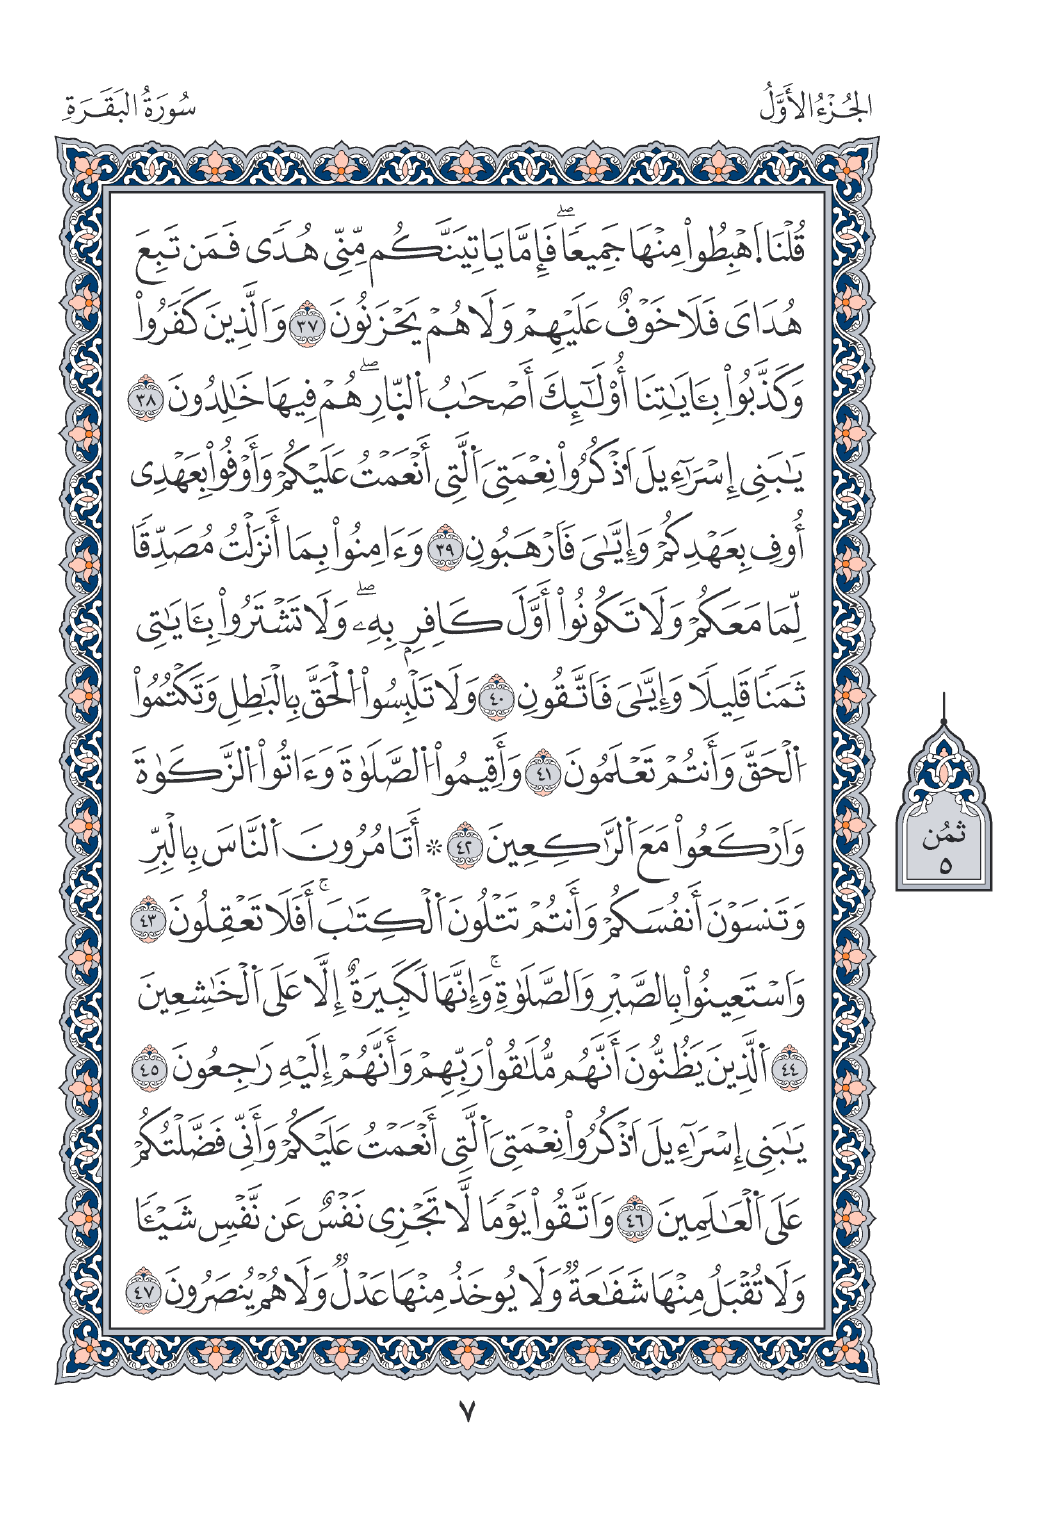 الجُزْءُ الأَوَّلُ
سُورَةُ البَقَرَةِ
قُلْنَا اَهْبِطُواْ مِنْهَا جَمِيعاٗۖ فَإِمَّا يَاتِيَنَّكُم مِّنِّے هُدٗى فَمَن تَبِعَ
هُدَايَ فَلَا خَوْفٌ عَلَيْهِمْ وَلَا هُمْ يَحْزَنُونَ ٣٧ وَالَّذِينَ كَفَرُواْ
وَكَذَّبُواْ بِـَٔايَٰتِنَا أُوْلَٰٓئِكَ أَصْحَٰبُ النّ۪ارِۖ هُمْ فِيهَا خَٰلِدُونَ ٣٨
يَٰبَنِے إِسْرَآءِيلَ اَذْكُرُواْ نِعْمَتِيَ اَلَّتِے أَنْعَمْتُ عَلَيْكُمْ وَأَوْفُواْ بِعَهْدِے
أُوفِ بِعَهْدِكُمْ وَإِيَّٰيَ فَارْهَبُونِ ٣٩ وَءَامِنُواْ بِمَا أَنزَلْتُ مُصَدِّقاٗ
لِّمَا مَعَكُمْ وَلَا تَكُونُواْ أَوَّلَ كَافِرِۢ بِهِۦۖ وَلَا تَشْتَرُواْ بِـَٔايَٰتِے
ثَمَناٗ قَلِيلاٗ وَإِيَّٰيَ فَاتَّقُونِ ٤٠ وَلَا تَلْبِسُواْ اُلْحَقَّ بِالْبَٰطِلِ وَتَكْتُمُواْ
اُلْحَقَّ وَأَنتُمْ تَعْلَمُونَ ٤١ وَأَقِيمُواْ اُلصَّلَوٰةَ وَءَاتُواْ اُلزَّكَوٰةَ
وَارْكَعُواْ مَعَ اَلرَّٰكِعِينَ ٤٢ ۞ أَتَامُرُونَ اَلنَّاسَ بِالْبِرِّ
وَتَنسَوْنَ أَنفُسَكُمْ وَأَنتُمْ تَتْلُونَ اَلْكِتَٰبَۚ أَفَلَا تَعْقِلُونَ ٤٣
وَاسْتَعِينُواْ بِالصَّبْرِ وَالصَّلَوٰةِۚ وَإِنَّهَا لَكَبِيرَةٌ إِلَّا عَلَى اَلْخَٰشِعِينَ
٤٤ اَلَّذِينَ يَظُنُّونَ أَنَّهُم مُّلَٰقُواْ رَبِّهِمْ وَأَنَّهُمْ إِلَيْهِ رَٰجِعُونَ ٤٥
يَٰبَنِے إِسْرَآءِيلَ اَذْكُرُواْ نِعْمَتِيَ اَلَّتِے أَنْعَمْتُ عَلَيْكُمْ وَأَنِّے فَضَّلْتُكُمْ
عَلَى اَلْعَٰلَمِينَ ٤٦ وَاتَّقُواْ يَوْماٗ لَّا تَجْزِے نَفْسٌ عَن نَّفْسٖ شَيْـٔاٗ
وَلَا تُقْبَلُ مِنْهَا شَفَٰعَةٞ وَلَا يُوخَذُ مِنْهَا عَدْلٞ وَلَا هُمْ يُنصَرُونَ ٤٧
ثُمُن
٥
٧